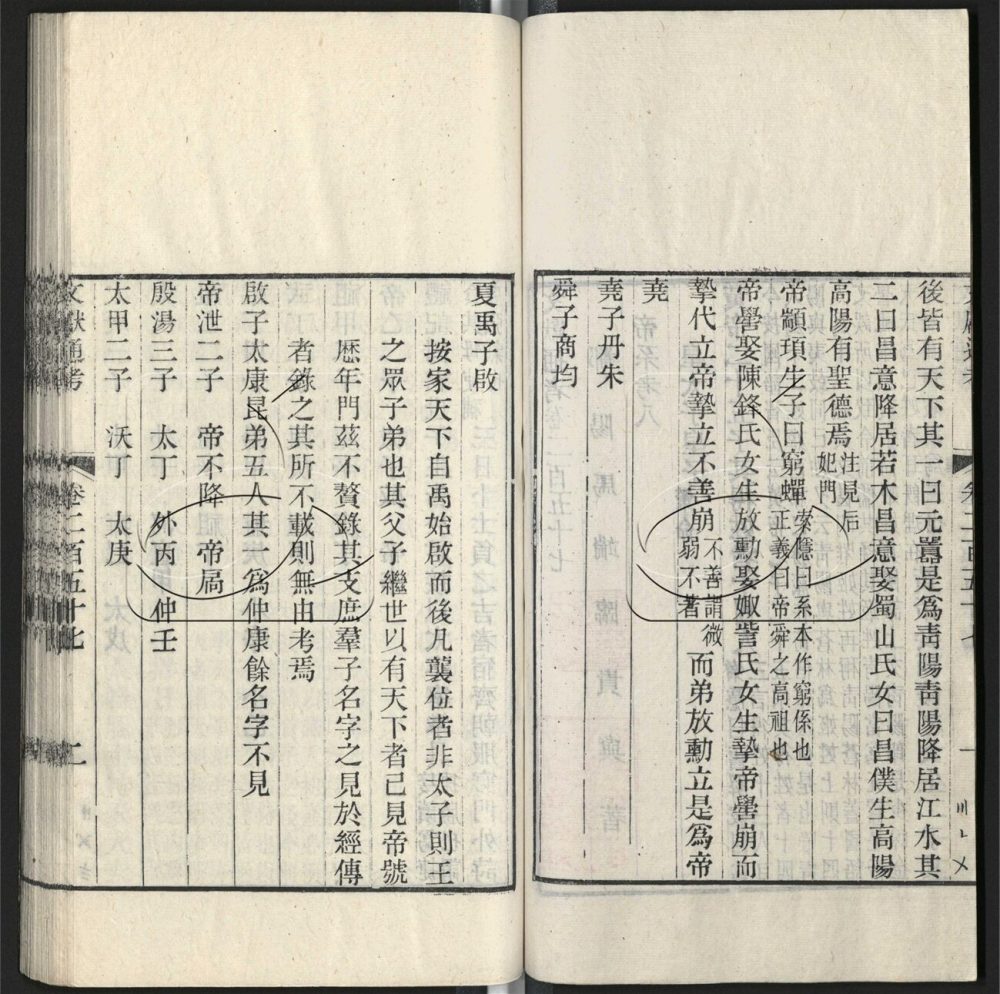 後皆有天下其一曰元囂是爲靑陽靑陽降居江水其
二曰昌意降居若木昌意娶蜀山氏女曰昌僕生高陽
高陽有聖德焉注見后妃門
帝顓頊生子曰窮蟬索隱曰系本作窮係也正義曰帝舜之高祖也
帝嚳娶陳鋒氏女生放勳娶娵訾氏女生摯帝嚳崩而
摯代立帝摯立不善崩不善謂微弱不著而弟放勳立是爲帝
堯
堯子丹朱
舜子商均
夏禹子啟
按家天下自禹始啟而後凡襲位者非太子則王
之眾子弟也其父子繼世以有天下者已見帝號
歷年門茲不贅錄其支庶羣子名字之見於經傳
者錄之其所不載則無由考焉
啟子太康昆弟五人其一爲仲康餘名字不見
帝泄二子 帝不降 帝扃
殷湯三子 太丁 外丙 仲壬
太甲二子 沃丁 太庚
文獻通考 卷二百五十七 二